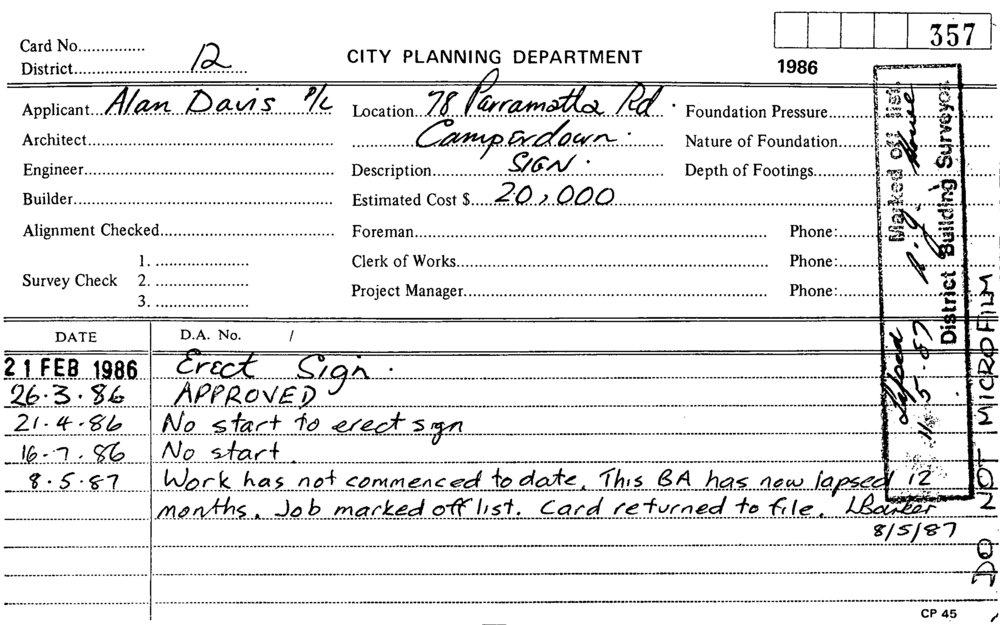 357
Card No...............
District.......... 12
CITY PLANNING DEPARTMENT
1986
Applicant Alan Davis P/L
Location 78 Parramatta Rd.
Camperdown.
Foundation Pressure
Architect
Nature of Foundation
Engineer
Description SIGN.
Depth of Footings
Builder
Estimated Cost $ 20,000
Alignment Checked
Foreman
Phone:
Survey Check
1.
2.
3.
Clerk of Works
Phone:
Project Manager
Phone:
Marked off list
Lapsed
11.5.87
District Building Surveyor
DO NOT MICROFILM
DATE
D.A. No. /
21 FEB 1986 Erect Sign.
26.3.86 APPROVED
21.4.86 No start to erect sign
16.7.86 No start.
8.5.87 Work has not commenced to date. This BA has now lapsed 12
months. Job marked off list. Card returned to file. LBarker
8/5/87
CP 45